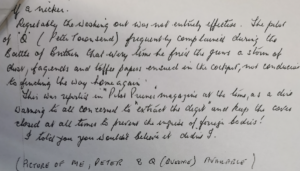 of a nicker.
Probably the washing out was not entirely effective. The pilot
of 'Q' (Peter Townsend) frequently complained during the
Battle of Britain that every time he fired the guns a storm of
dust, fagends and toffee papers ensued in the cockpit, not conducive
to finding the way home again.
This was reported in "Pilot Prune's magazine at the time, as a dire
warning to all concerned to "extract the digit and keep the covers
closed at all times to prevent the ingress of foreign bodies!
I told you you wouldn't believe it didn't I.
(PICTURE OF ME, PETER & Q (QUEENIE) AVAILABLE)